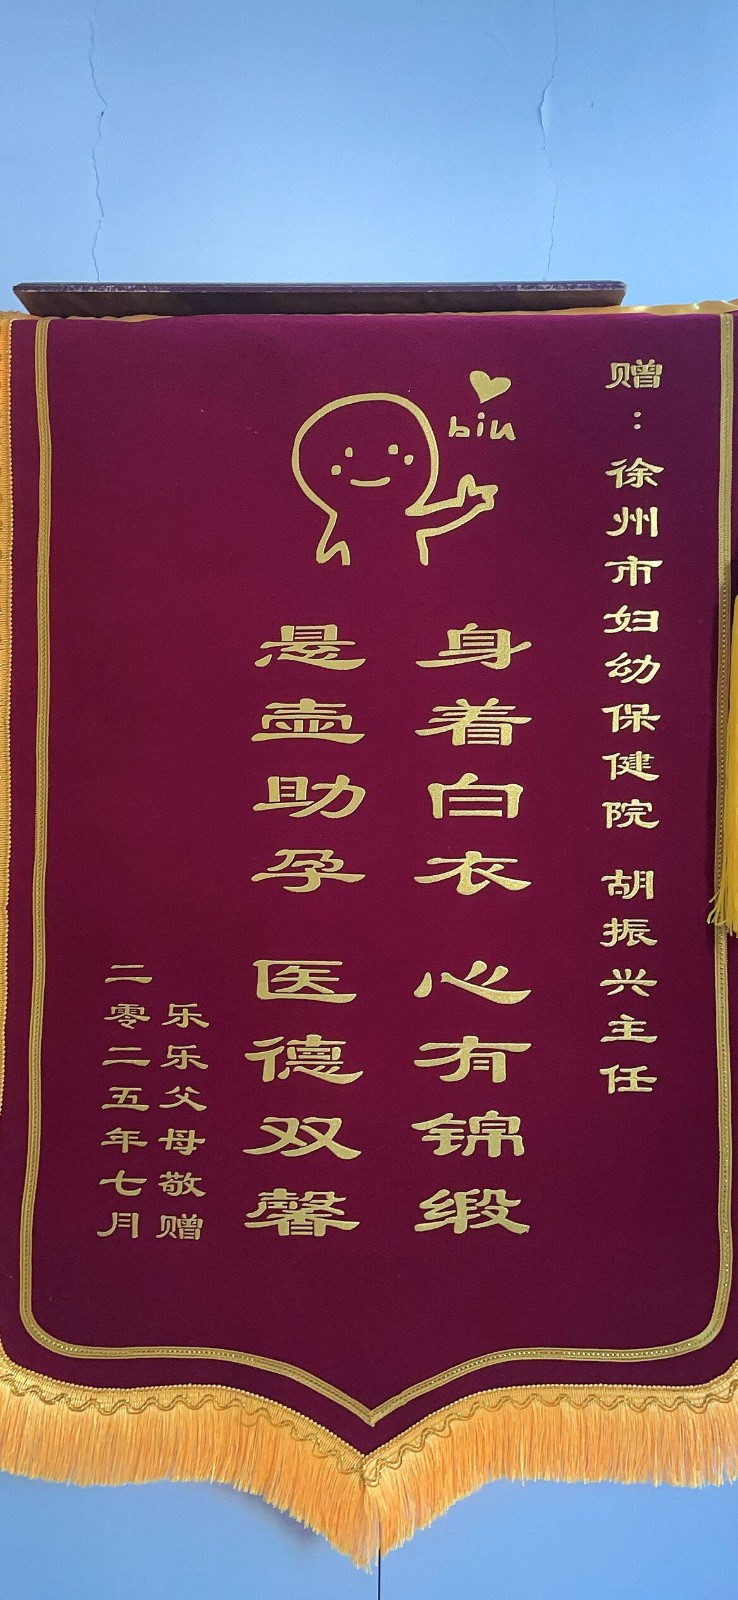 赠:徐州市妇幼保健院 胡振兴主任
biu
身着白衣 心有锦缎
悬壶助孕 医德双馨
乐乐父母敬赠
二零二五年七月